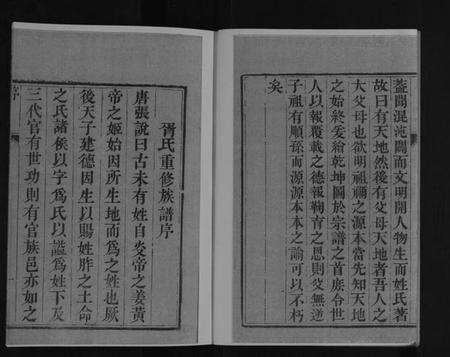 蓋聞混沌闢而文明開人物生而姓氏著
故曰有天地然後有父母天地者吾人之
大父母也欲明祖禰之源本當先知天地
之始終爰繪乾坤圖於宗譜之首庶令世
人以報覆載之德報鞠育之恩則爻無逆
子祖有順孫而源源本本之諭可以不朽
矣
胥氏重修族譜序
唐張說曰古未有姓自炎帝之姜黃
帝之姬始因所生地而為之姓也厥
後天子建德因生以賜姓胙之土命
之氏諸侯以字為氏以謚為姓下及
三代官有世功則有官族邑亦如之
序